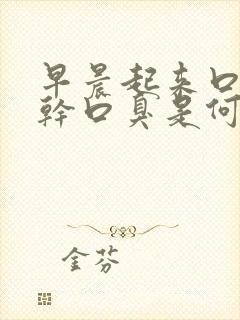 早晨起来口
幹口臭是何
金芬